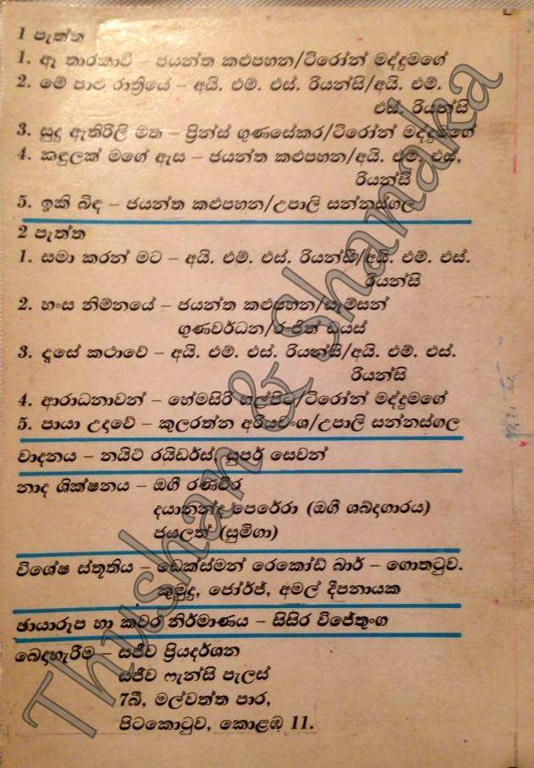 1 පැත්ත
1. ඈ තාරකාවි – ජයන්ත කළුපහන/ටිරෝන් මද්දුමගේ
2. මේ පාළු රාත්‍රියේ – අයි. එම්. එස්. රියන්සි/අයි. එම්.
එස්. රියන්සි
3. සුදු ඇතිරිලි මත – ප්‍රින්ස් ගුණසේකර/ටිරෝන් මද්දුමගේ
4. කඳුලක් මගේ ඇස – ජයන්ත කළුපහන/අයි. එම්. එස්.
රියන්සි
5. ඉකි බිඳ – ජයන්ත කළුපහන/උපාලි සන්නස්ගල
2 පැත්ත
1. සමා කරන් මට – අයි. එම්. එස්. රියන්සි/අයි. එම්. එස්.
රියන්සි
2. හංස නිම්නයේ – ජයන්ත කළුපහන/සැම්සන්
ගුණවර්ධන/රංජිත් ඩයස්
3. දෑසේ කථාවේ – අයි. එම්. එස්. රියන්සි/අයි. එම්. එස්.
රියන්සි
4. ආරාධනාවන් – හේමසිරි හල්පිට/ටිරෝන් මද්දුමගේ
5. පායා උදාවේ – කුලරත්න අරියවංශ/උපාලි සන්නස්ගල
වාදනය – නයිට් රයිඩර්ස්, සුපර් සෙවන්
නාද ශික්ෂනය – ඔගී රණවීර
දයානන්ද පෙරේරා (ඔගී ශබ්දාගාරය)
ජයලත් (සුම්ගා)
විශේෂ ස්තූතිය – ඩෙක්ස්මන් රෙකෝඩ් බාර් – ගොතටුව.
කුමුදු, ජෝර්ජ්, අමල් දීපනායක
ඡායාරූප හා කවර නිර්මාණය – සිසිර විජේතුංග
බෙදාහැරීම – සජීව ප්‍රියදර්ශන
සජීව ෆැන්සි පැලස්
7බී, මල්වත්ත පාර,
පිටකොටුව, කොළඹ 11.
Thushan & Shanaka